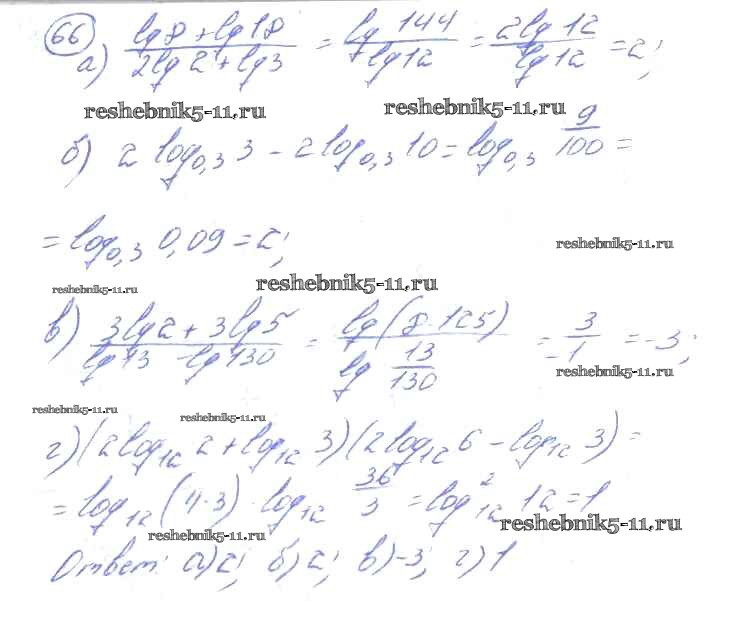 66
а) (lg 8 + lg 18)/(2lg 2 + lg 3) = lg 144/lg 12 = 2lg 12/lg 12 = 2;
reshebnik5-11.ru reshebnik5-11.ru
б) 2 log₀,₃ 3 - 2 log₀,₃ 10 = log₀,₃ 9/100 =
= log₀,₃ 0,09 = 2;
reshebnik5-11.ru
reshebnik5-11.ru
reshebnik5-11.ru
в) (3lg2 + 3lg5)/(lg 13 - lg 130) = lg(8·125)/lg 13/130 = 3/-1 = -3;
reshebnik5-11.ru
reshebnik5-11.ru
reshebnik5-11.ru
г) (2log₁₂ 2 + log₁₂ 3)(2log₁₂ 6 - log₁₂ 3) =
= log₁₂ (4·3) · log₁₂ 36/3 = log²₁₂ 12 = 1
reshebnik5-11.ru
reshebnik5-11.ru
Ответ: а) 2; б) 2; в) -3; г) 1